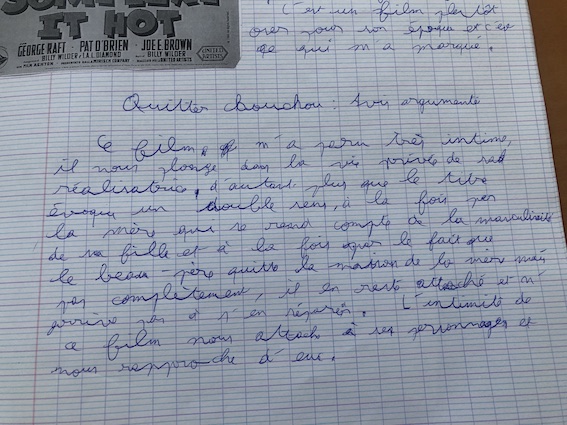 SOME LIKE
IT HOT
GEORGE RAFT · PAT O'BRIEN · JOE E. BROWN
BILLY WILDER / I.A.L. DIAMOND BILLY WILDER
UNITED ARTISTS
C'est un film plutôt
osé pour son époque et c'est
ce qui m'a marqué.
Quitter chouchou : Avis argumenté
Ce film, m'a paru très intime,
il nous plonge dans la vie privée de sa
réalisatrice, d'autant plus que le titre
évoque un double sens, à la fois par
la mère qui se rend compte de la masculinité
de sa fille et à la fois par le fait que
le beau-père quitte la maison de la mère mais
pas complètement, il en reste attaché et n'
arrive pas à s'en séparer. L'intimité de
ce film nous attache à ses personnages et
nous rapproche d'eux.